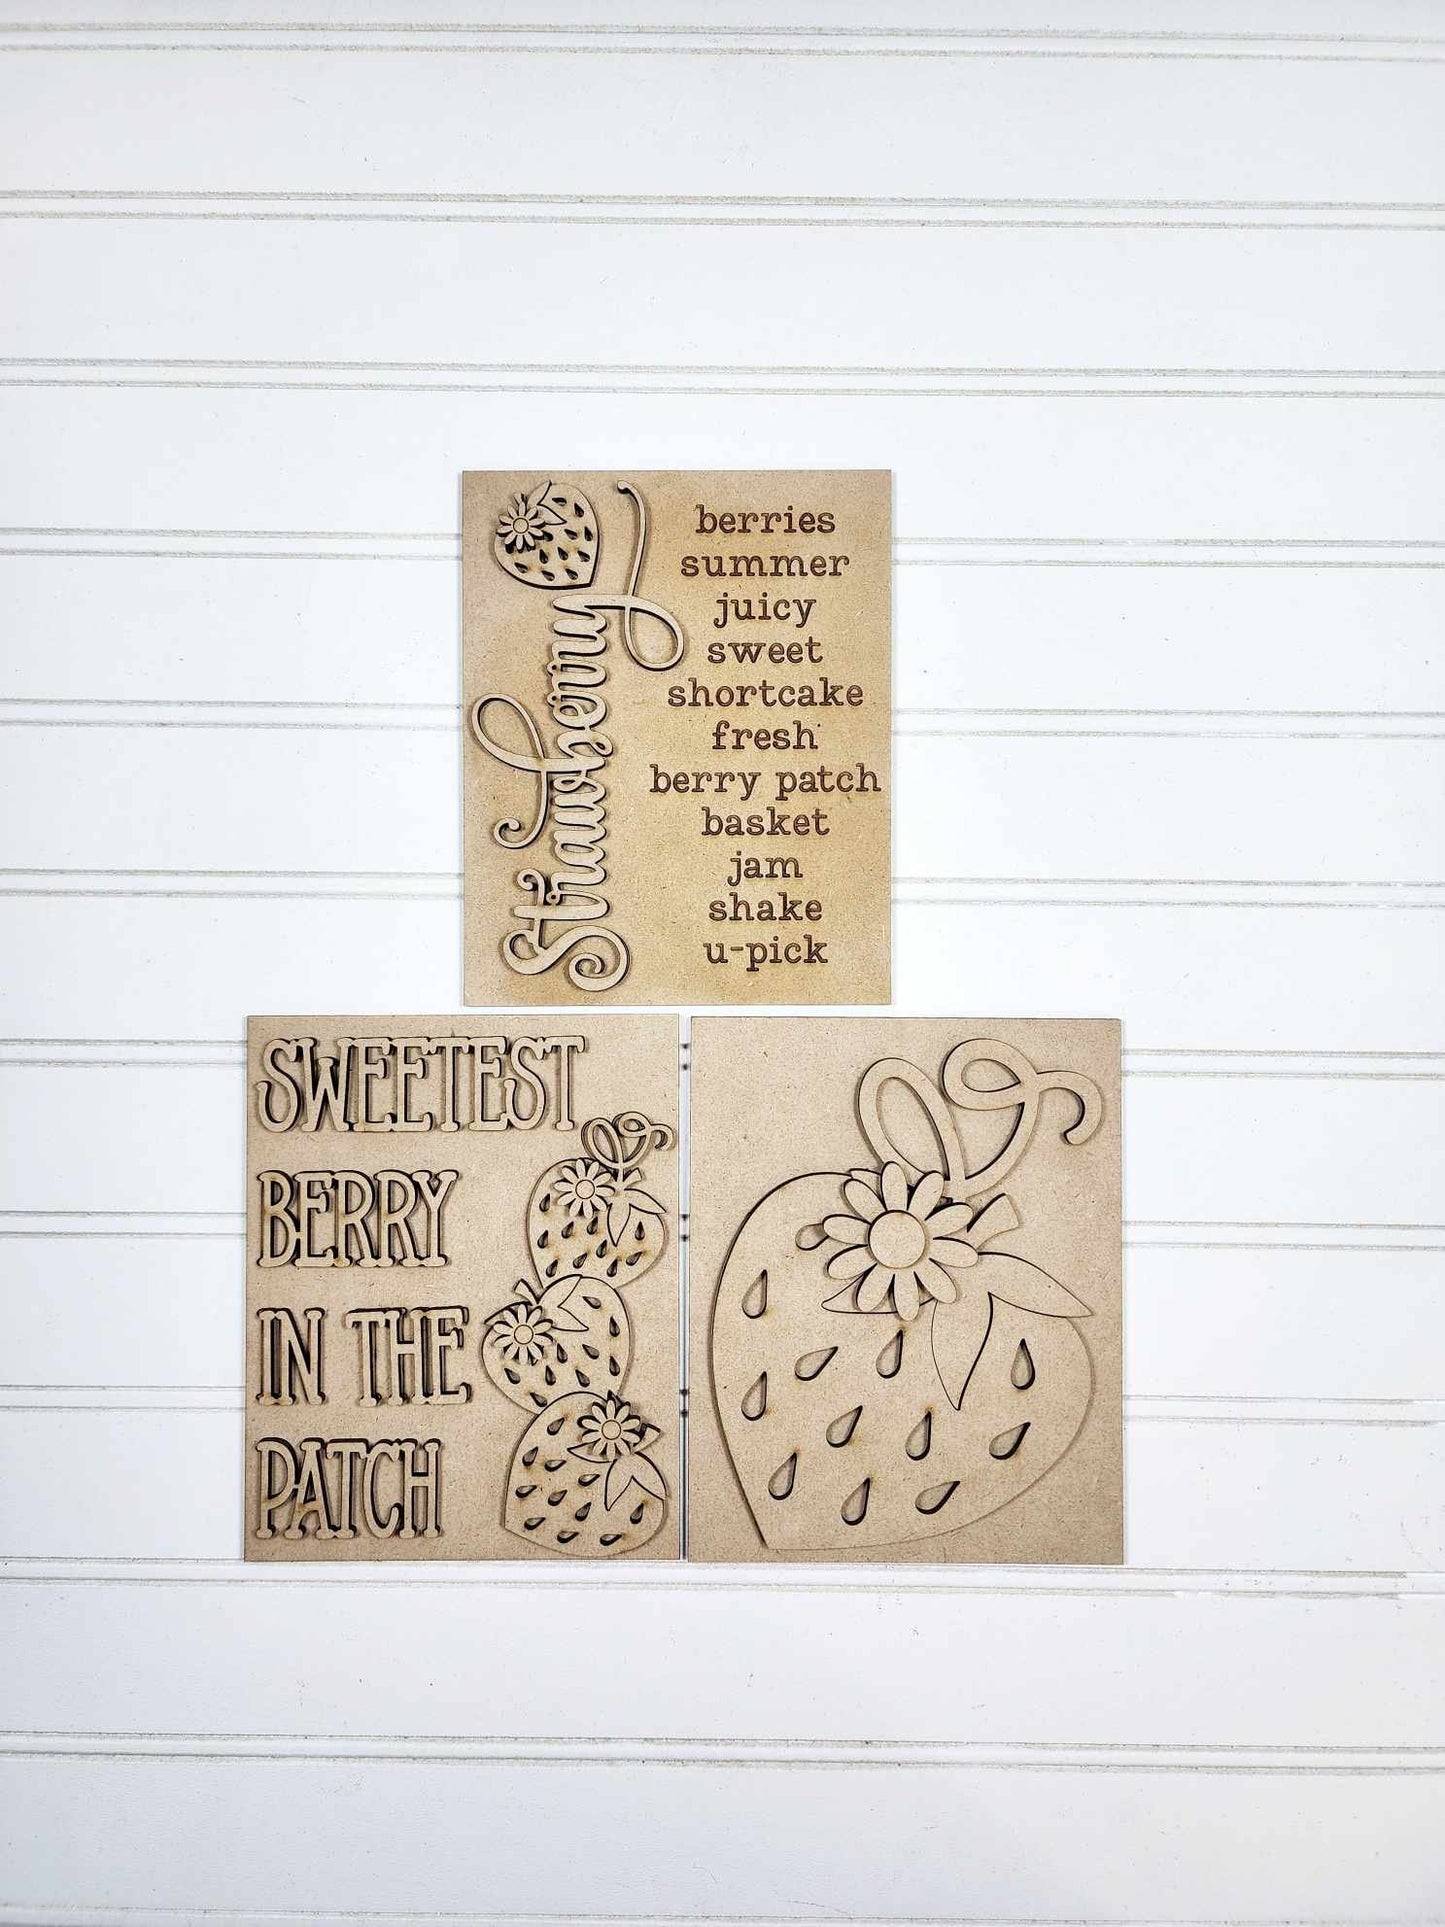 Strawberry
berries
summer
juicy
sweet
shortcake
fresh
berry patch
basket
jam
shake
u-pick
SWEETEST
BERRY
IN THE
PATCH